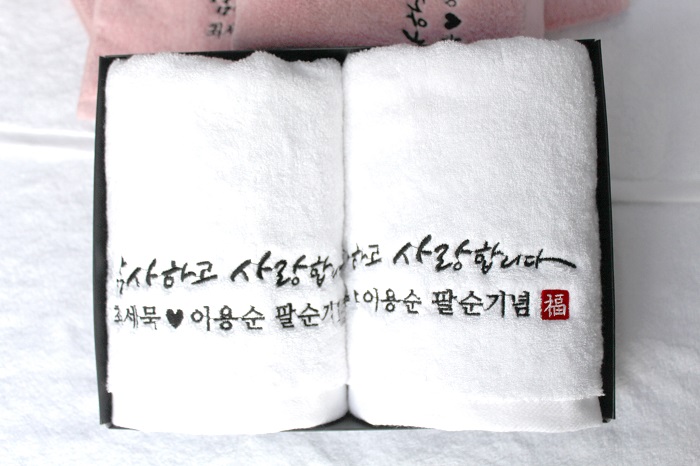 감사하고 사랑합니
조세묵 ♥ 이용순 팔순기
하고 사랑합니다
이용순 팔순기념 福